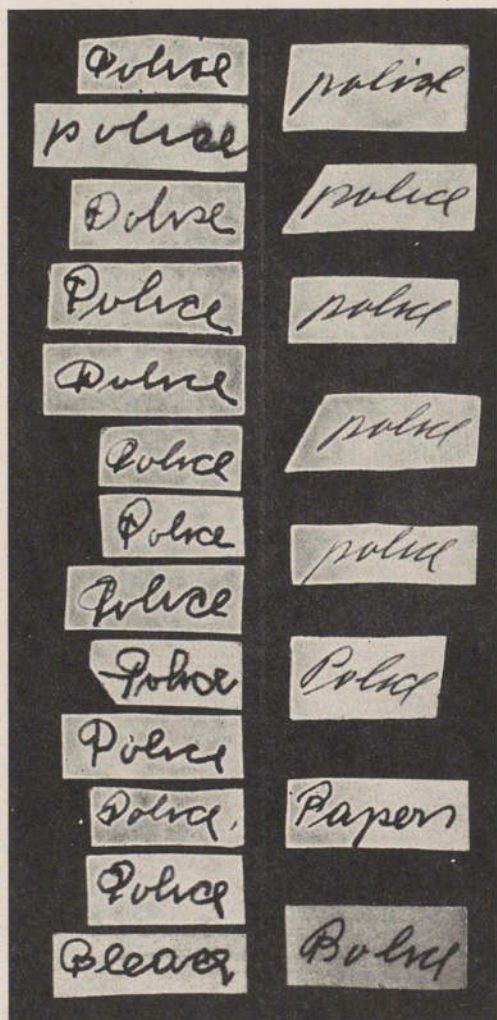 Police
police
Police
Police
Police
Police
Police
Police
Police
Police
Police
Police
police
police
police
police
police
Police
Papers
Bolice